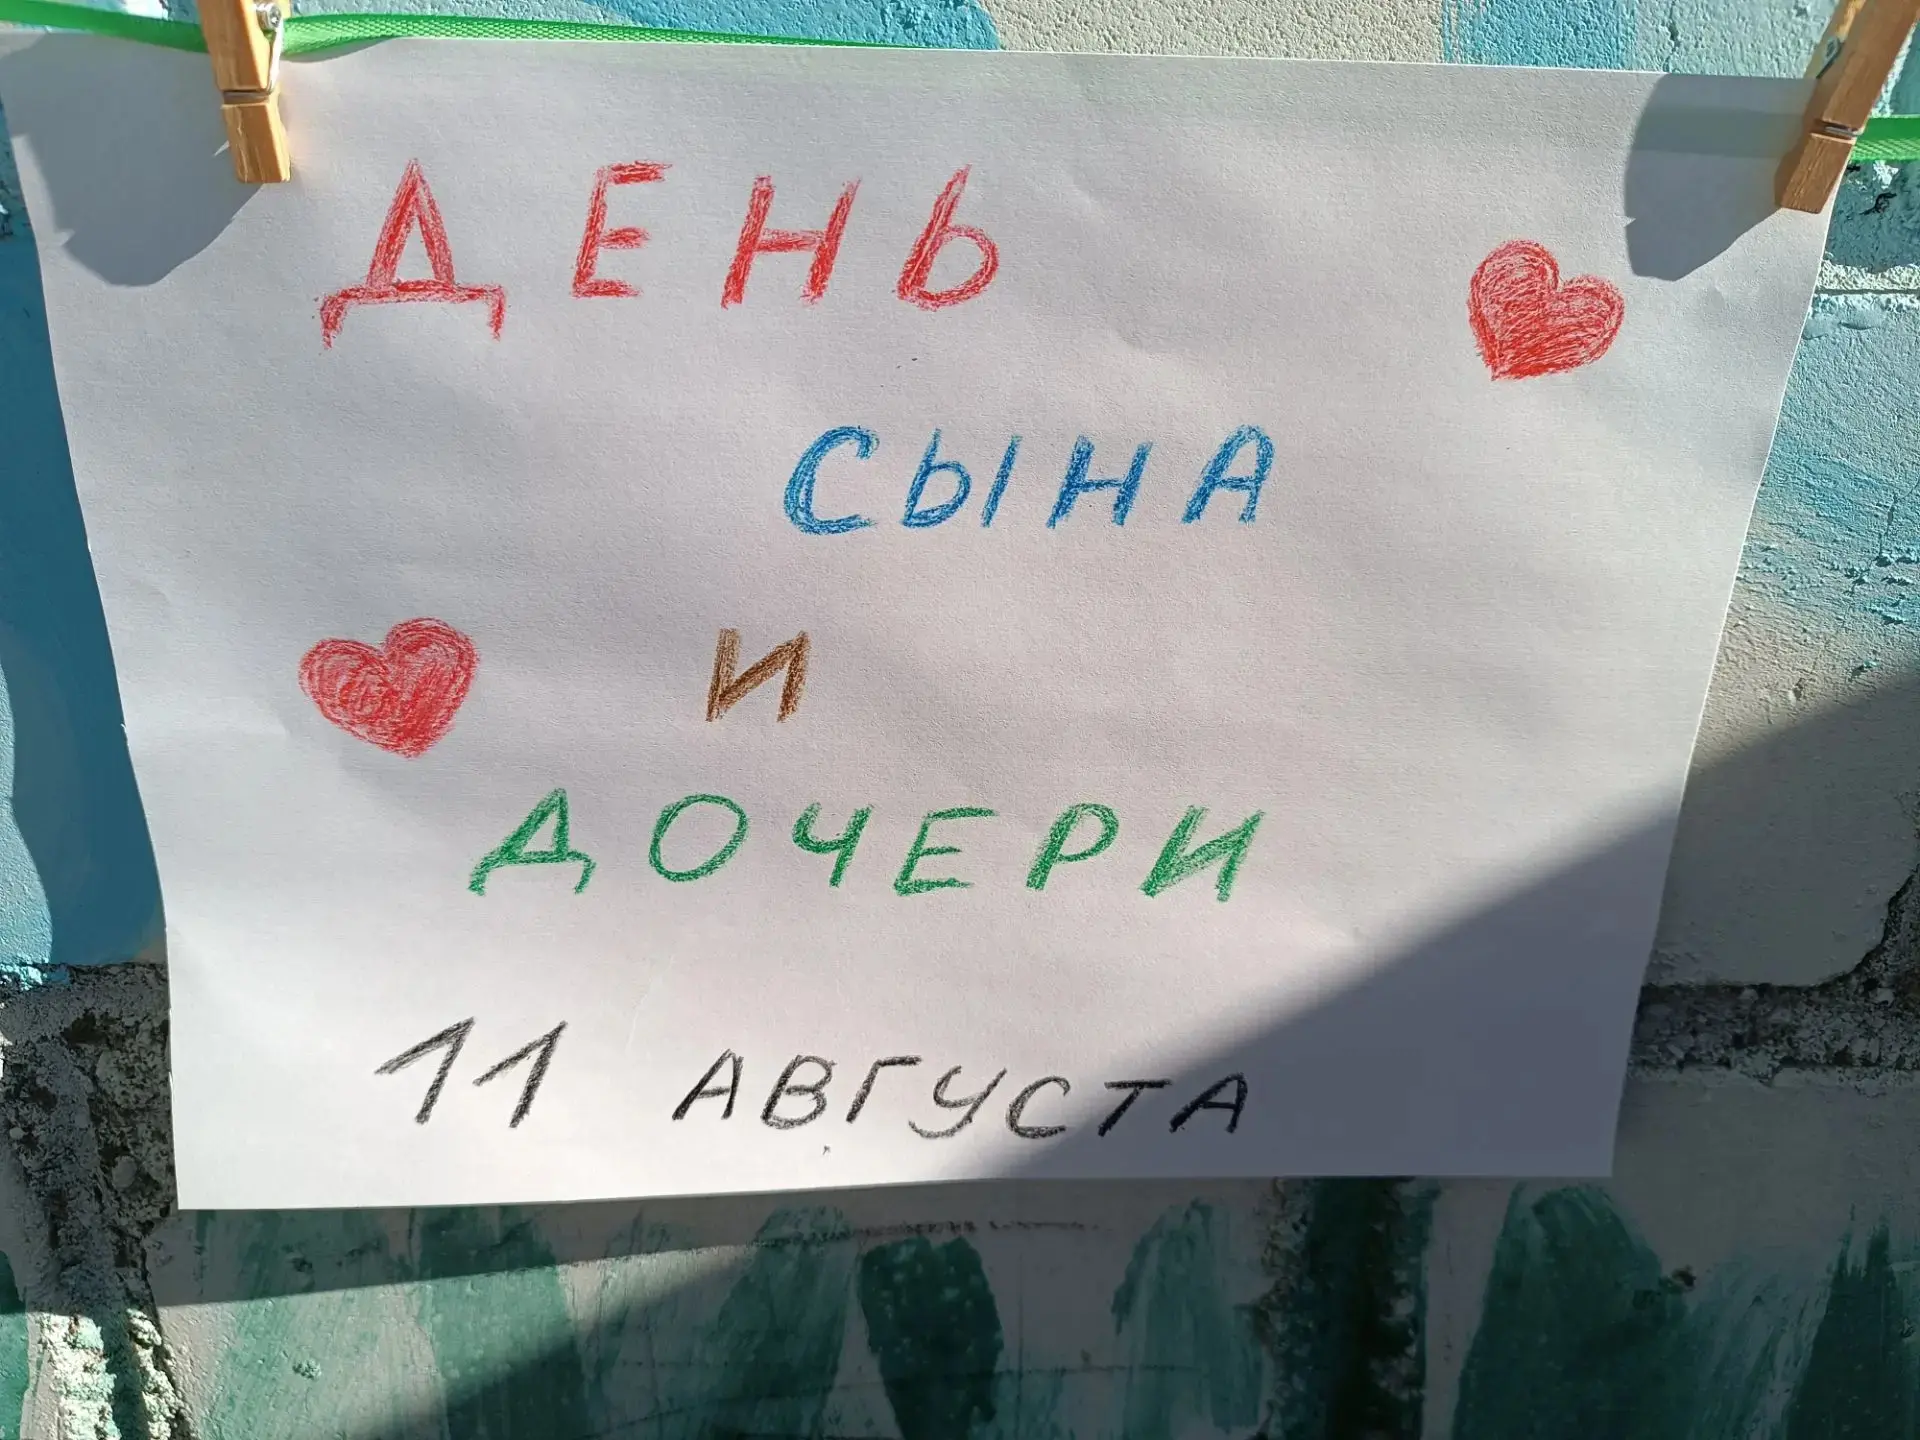 ДЕНЬ
СЫНА
И
ДОЧЕРИ
11 АВГУСТА